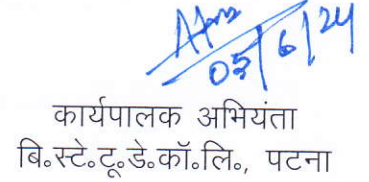 05/6/24
कार्यपालक अभियंता
बि॰स्टे॰टू॰डे॰कॉ॰लि॰, पटना